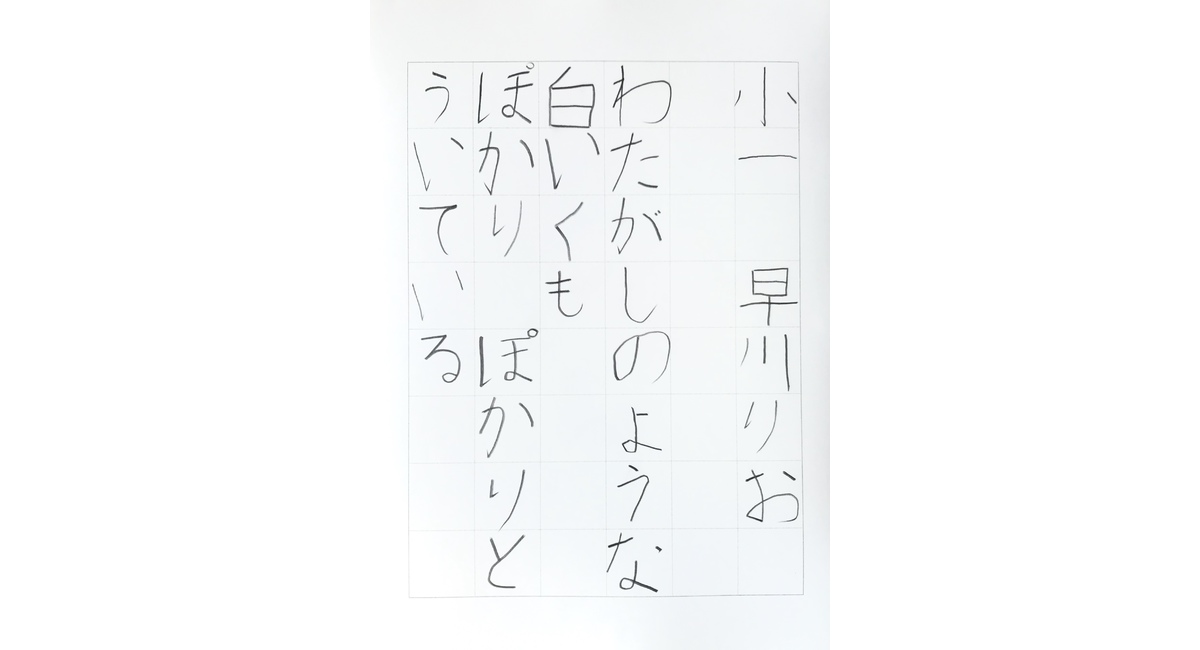 小一　早川りお
わたがしのような
白いくも
ぽかり　ぽかりと
ういている